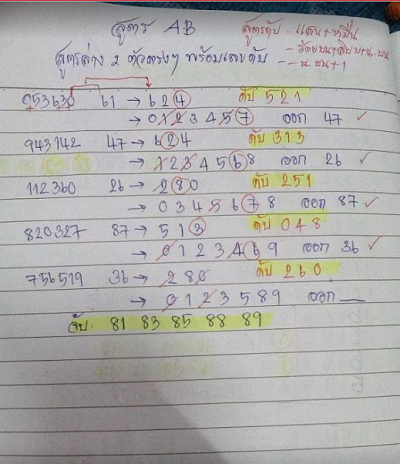 สูตร AB
สูตรดับ - แสน+หมื่น
สูตรล่าง 2 ตัวตรงๆ พร้อมเลขดับ
- ร้อยบน+สิบบน+น.บน
- น.บน+1
953630 61 → 624 ดับ 521
→ 0123457 ออก 47 ✓
943142 47 → 624 ดับ 313
→ 1234568 ออก 26 ✓
112360 26 → 280 ดับ 251
→ 0345678 ออก 87 ✓
820327 87 → 513 ดับ 048
→ 0123469 ออก 36 ✓
756519 36 → 280 ดับ 260
→ 0123589 ออก __
จับ 81 83 85 88 89